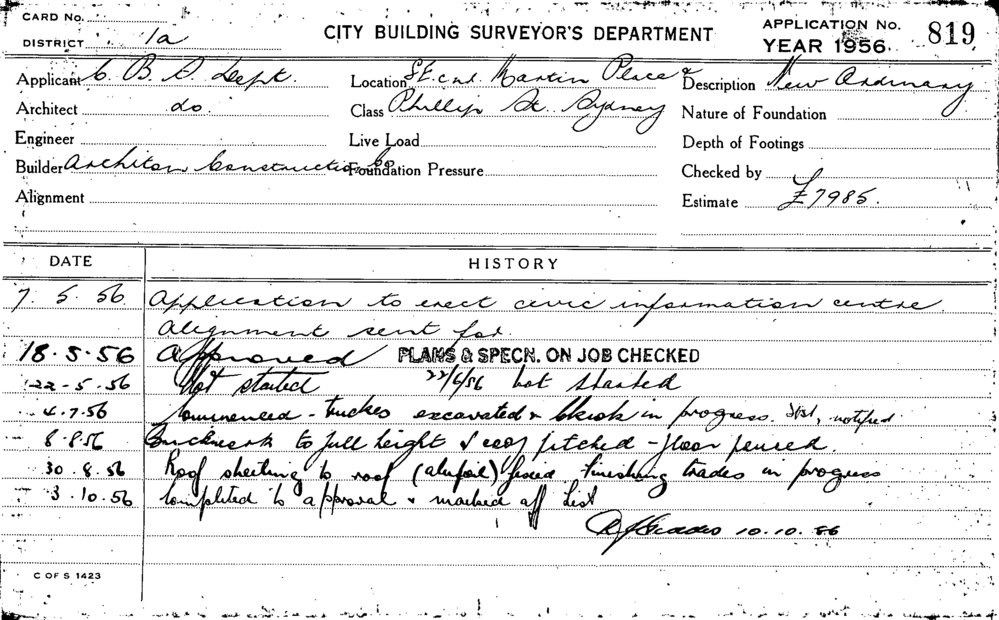 CARD No.
DISTRICT 1a
CITY BUILDING SURVEYOR'S DEPARTMENT
APPLICATION No. 819
YEAR 1956
Applicant C. B. S. Dept.
Location St. cnr. Martin Place &
Description New Ordinary
Architect do.
Class Phillip St. Sydney
Nature of Foundation
Engineer
Live Load
Depth of Footings
Builder Architon Construction Co
Foundation Pressure
Checked by
Alignment
Estimate £7985.
DATE HISTORY
7. 5. 56. Application to erect civic information centre.
Alignment sent for.
18.5.56 Approved PLANS & SPECN. ON JOB CHECKED
22-5-56 Not started 22/6/56 Not started
4.7.56 Commenced - trenches excavated & in progress. notified
8.8.56 Brickwork to full height & roof pitched - floor poured.
30.8.56 Roof sheeting to roof (alufoil) fixed finishing trades in progress
3.10.56 Completed to approval & marked off List
10.10.56
C OF S 1423